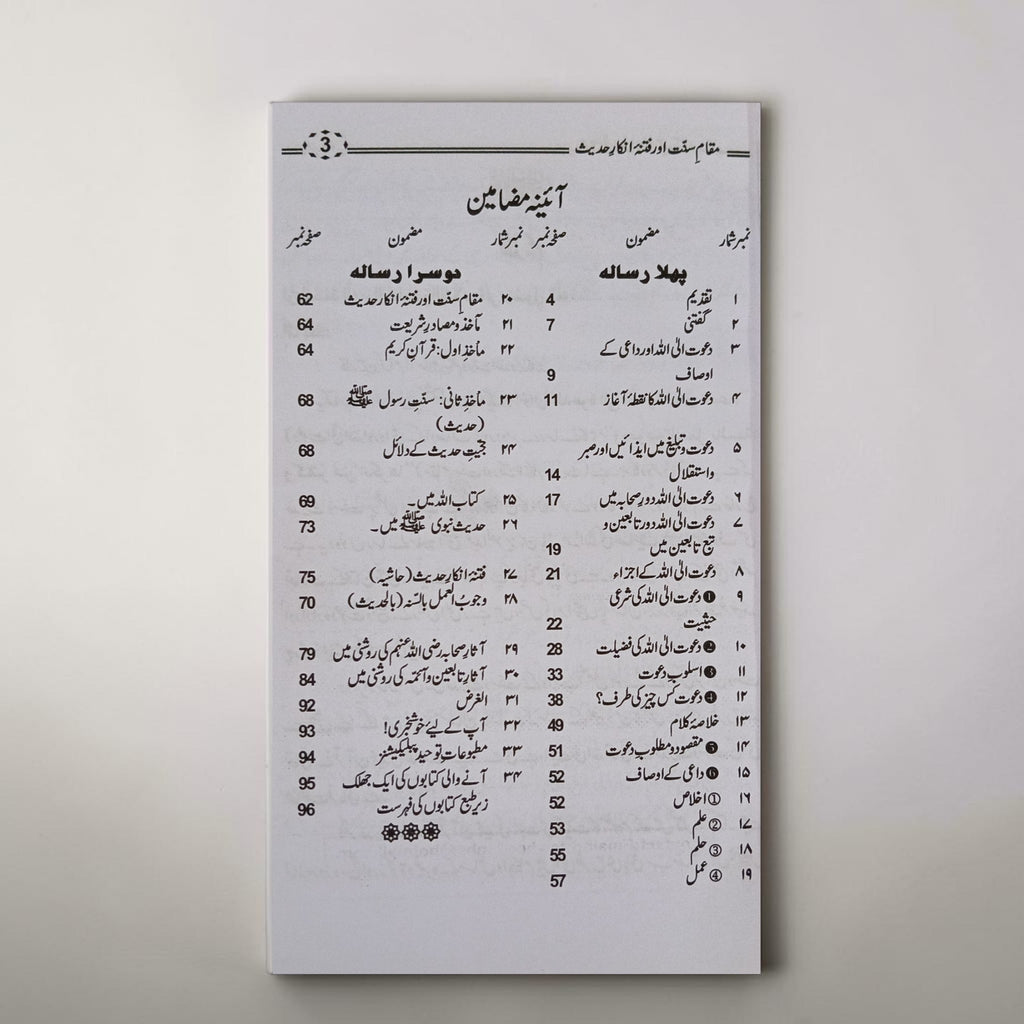 مقامِ سنّت اور فتنۂ انکارِ حدیث 3
آئینہ مضامین
نمبر شمار مضمون صفحہ نمبر
پہلا رسالہ
۱ تقدیم 4
۲ گفتنی 7
۳ دعوت الیٰ اللہ اور داعی کے
اوصاف 9
۴ دعوت الیٰ اللہ کا نقطۂ آغاز 11
۵ دعوت و تبلیغ میں ایذائیں اور صبر
واستقلال 14
۶ دعوت الیٰ اللہ دورِ صحابہ میں 17
۷ دعوت الیٰ اللہ دورِ تابعین و
تبع تابعین میں 19
۸ دعوت الیٰ اللہ کے اجزاء 21
۹ ❶ دعوت الیٰ اللہ کی شرعی
حیثیت 22
۱۰ ❷ دعوت الیٰ اللہ کی فضیلت 28
۱۱ ❸ اسلوبِ دعوت 33
۱۲ ❹ دعوت کس چیز کی طرف؟ 38
۱۳ خلاصۂ کلام 49
۱۴ مقصود و مطلوبِ دعوت 51
۱۵ داعی کے اوصاف 52
۱۶ ① اخلاص 52
۱۷ ② علم 53
۱۸ ③ حلم 55
۱۹ ④ عمل 57
نمبر شمار مضمون صفحہ نمبر
دوسرا رسالہ
۲۰ مقامِ سنّت اور فتنۂ انکارِ حدیث 62
۲۱ مآخذ و مصادرِ شریعت 64
۲۲ مأخذِ اول: قرآنِ کریم 64
۲۳ مأخذِ ثانی: سنّتِ رسول ﷺ 68
(حدیث)
۲۴ حجیّتِ حدیث کے دلائل 68
۲۵ کتاب اللہ میں۔ 69
۲۶ حدیثِ نبوی ﷺ میں۔ 73
۲۷ فتنۂ انکارِ حدیث (حاشیہ) 75
۲۸ وجوبُ العمل بالسّنہ (بالحدیث) 70
۲۹ آثارِ صحابہ رضی اللہ عنہم کی روشنی میں 79
۳۰ آثارِ تابعین و آئمّہ کی روشنی میں 84
۳۱ الغرض 92
۳۲ آپ کے لیئے خوشخبری! 93
۳۳ مطبوعاتِ توحید پبلیکیشنز 94
۳۴ آنے والی کتابوں کی ایک جھلک 95
زیرِ طبع کتابوں کی فہرست 96